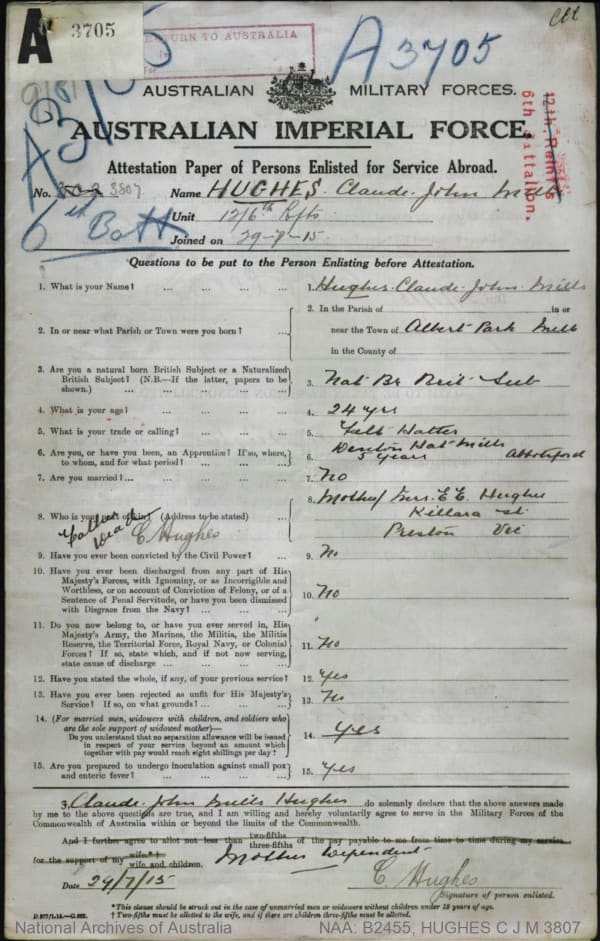 A 3705
RETURN TO AUSTRALIA
A3705
AUSTRALIAN MILITARY FORCES.
AUSTRALIAN IMPERIAL FORCE.
12th. Reinf's
6th Battalion.
Attestation Paper of Persons Enlisted for Service Abroad.
No. 3807 Name HUGHES. Claude. John Mills
6th Batt
Unit 12/6th Rfts
Joined on 29-7-15.
Questions to be put to the Person Enlisting before Attestation.
1. What is your Name? ... ... ... ... 1. Hughes. Claude. John. Mills
2. In or near what Parish or Town were you born? ... 2. In the Parish of in or
near the Town of Albert Park Melb
in the County of
3. Are you a natural born British Subject or a Naturalized
British Subject? (N.B.—If the latter, papers to be
shown.) ... ... ... ... 3. Nat Br Brit Sub
4. What is your age? ... ... ... ... 4. 24 yrs
5. What is your trade or calling? ... ... ... 5. Felt Hatter
6. Are you, or have you been, an Apprentice? If so, where,
to whom, and for what period? ... ... ... 6. Denton Hat Mills
5 years Abbotsford
7. Are you married? ... ... ... ... 7. No
8. Who is your next of kin? (Address to be stated) ... 8. Mother/ Mrs. E. E. Hughes
Killara St
Preston Vic
Father dead
C Hughes
9. Have you ever been convicted by the Civil Power? ... 9. No
10. Have you ever been discharged from any part of His
Majesty's Forces, with Ignominy, or as Incorrigible and
Worthless, or on account of Conviction of Felony, or of a
Sentence of Penal Servitude, or have you been dismissed
with Disgrace from the Navy? ... ... ... 10. No
11. Do you now belong to, or have you ever served in, His
Majesty's Army, the Marines, the Militia, the Militia
Reserve, the Territorial Force, Royal Navy, or Colonial
Forces? If so, state which, and if not now serving,
state cause of discharge ... ... ... ... 11. No
12. Have you stated the whole, if any, of your previous service? 12. Yes
13. Have you ever been rejected as unfit for His Majesty's
Service? If so, on what grounds? ... ... ... 13. No
14. (For married men, widowers with children, and soldiers who
are the sole support of widowed mother)—
Do you understand that no separation allowance will be issued
in respect of your service beyond an amount which
together with pay would reach eight shillings per day? 14. Yes
15. Are you prepared to undergo inoculation against small pox
and enteric fever? ... ... ... ... 15. Yes
I, Claude. John Mills Hughes do solemnly declare that the above answers made
by me to the above questions are true, and I am willing and hereby voluntarily agree to serve in the Military Forces of the
Commonwealth of Australia within or beyond the limits of the Commonwealth.
And I further agree to allot not less than two-fifths three-fifths of the pay payable to me from time to time during my service
for the support of my wife*† wife and children.
Mother Dependent
Date 29/7/15 C Hughes
Signature of person enlisted.
*This clause should be struck out in the case of unmarried men or widowers without children under 18 years of age.
† Two-fifths must be allotted to the wife, and if there are children three-fifths must be allotted.
National Archives of Australia NAA: B2455, HUGHES C J M 3807